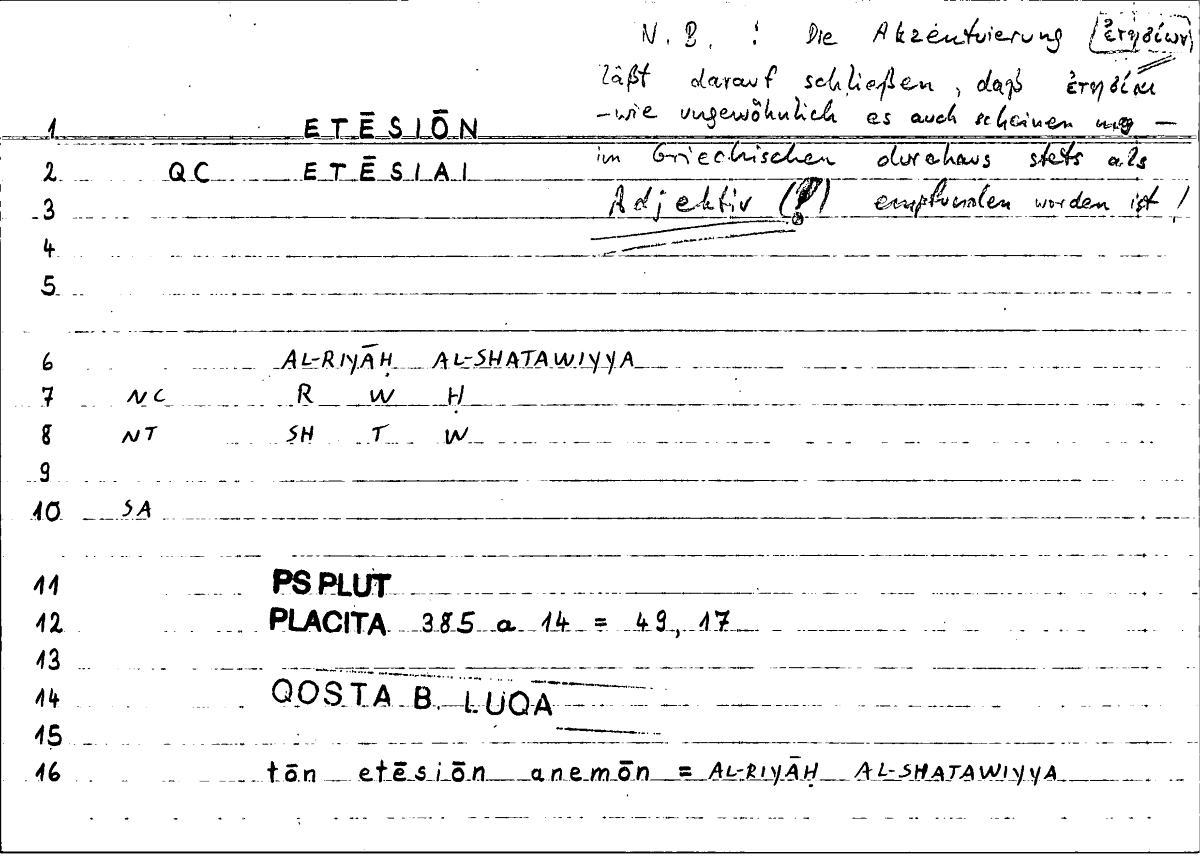 N.B. ! Die Akzentuierung (ἐτησίων)
läßt darauf schließen, daß ἐτησίαι
– wie ungewöhnlich es auch scheinen mag –
im Griechischen durchaus stets als
Adjektiv (!) empfunden worden ist!
1 ETĒSIŌN
2 QC ETĒSIAI
3
4
5
6 AL-RIYĀḤ AL-SHATAWIYYA
7 NC R W Ḥ
8 NT SH T W
9
10 SA
11 PS PLUT
12 PLACITA 385 a 14 = 49, 17
13
14 QOSTA B. LUQA
15
16 tōn etēsiōn anemōn = AL-RIYĀḤ AL-SHATAWIYYA